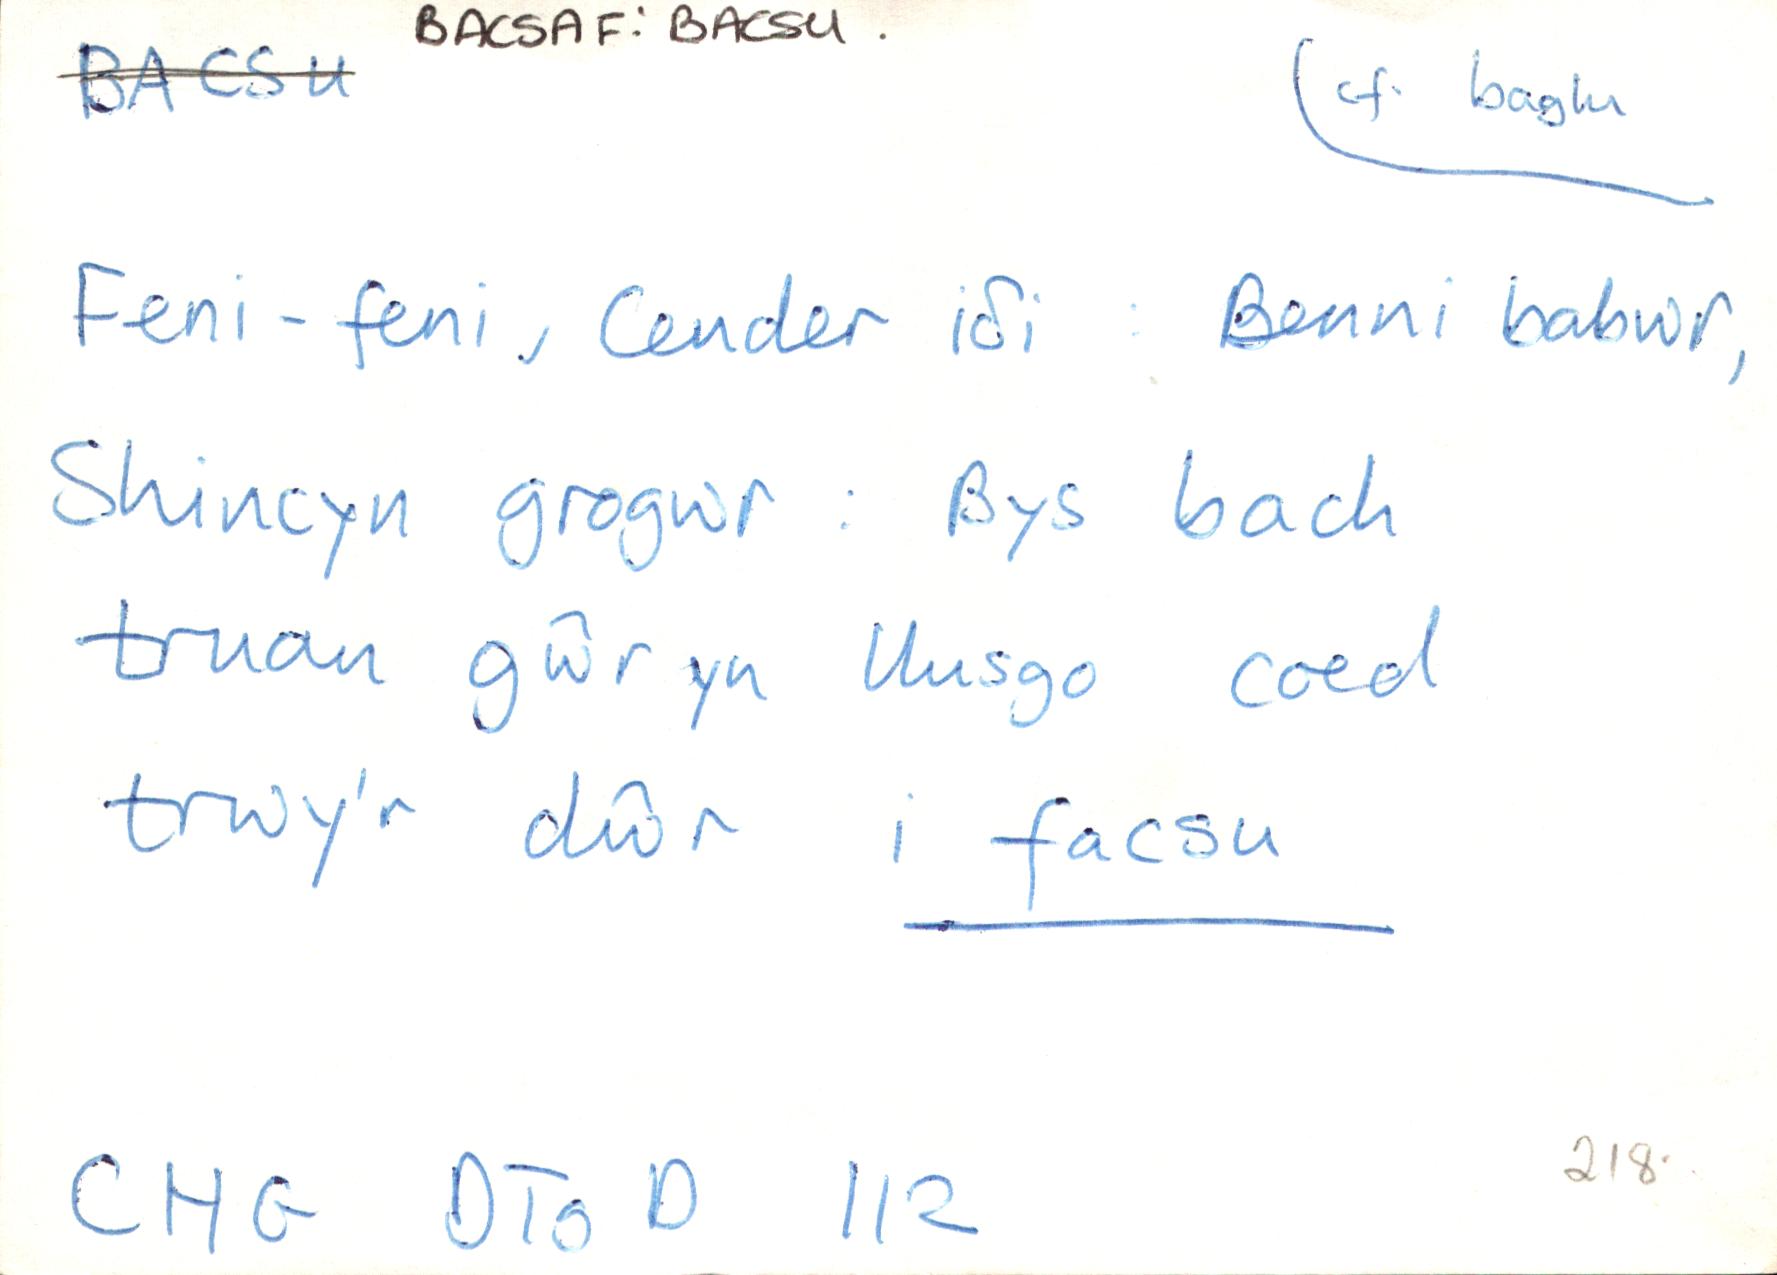 BACSAF: BACSU.
BACSU
(cf. baglu
Feni-feni, Cender iδi : Benni babwr,
Shincyn grogwr : Bys bach
truan gŵr yn llusgo coed
trwy'r dŵr i facsu
CHG DTG D 112
218.